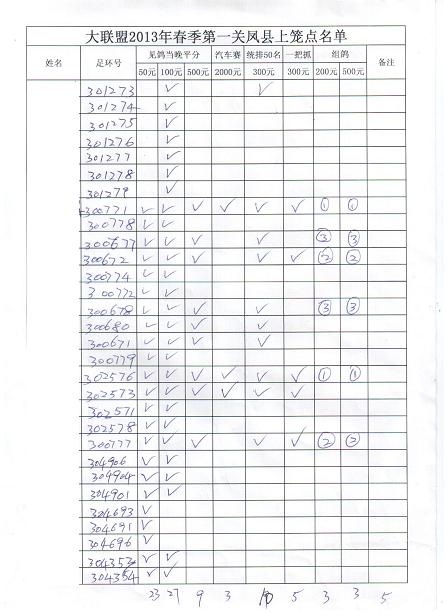 大联盟2013年春季第一关凤县上笼点名单
姓名 足环号 见鸽当晚平分 汽车赛 统排50名 一把抓 组鸽 备注
50元 100元 500元 2000元 300元 300元 200元 500元
301273 ✓ ✓
301274 ✓
301275 ✓
301276 ✓
301277 ✓
301278 ✓
301279 ✓
300771 ✓ ✓ ✓ ✓ ✓ ✓ ① ①
300778 ✓ ✓
300677 ✓ ✓ ✓ ✓ ③ ③
300672 ✓ ✓ ✓ ✓ ✓ ② ②
300774 ✓ ✓
300772 ✓ ✓
300678 ✓ ✓ ✓ ✓ ③ ③
300680 ✓ ✓ ✓ ✓
300671 ✓ ✓ ✓ ✓
300779 ✓ ✓
302576 ✓ ✓ ✓ ✓ ✓ ✓ ① ①
302573 ✓ ✓ ✓ ✓ ✓ ✓
302571 ✓ ✓
302578 ✓ ✓
300777 ✓ ✓ ✓ ✓ ✓ ② ②
304906 ✓ ✓
304904 ✓ ✓
304901 ✓ ✓
304693 ✓
304691 ✓
304696 ✓
304353 ✓ ✓
304354 ✓ ✓
23 27 9 3 10 5 3 3 5